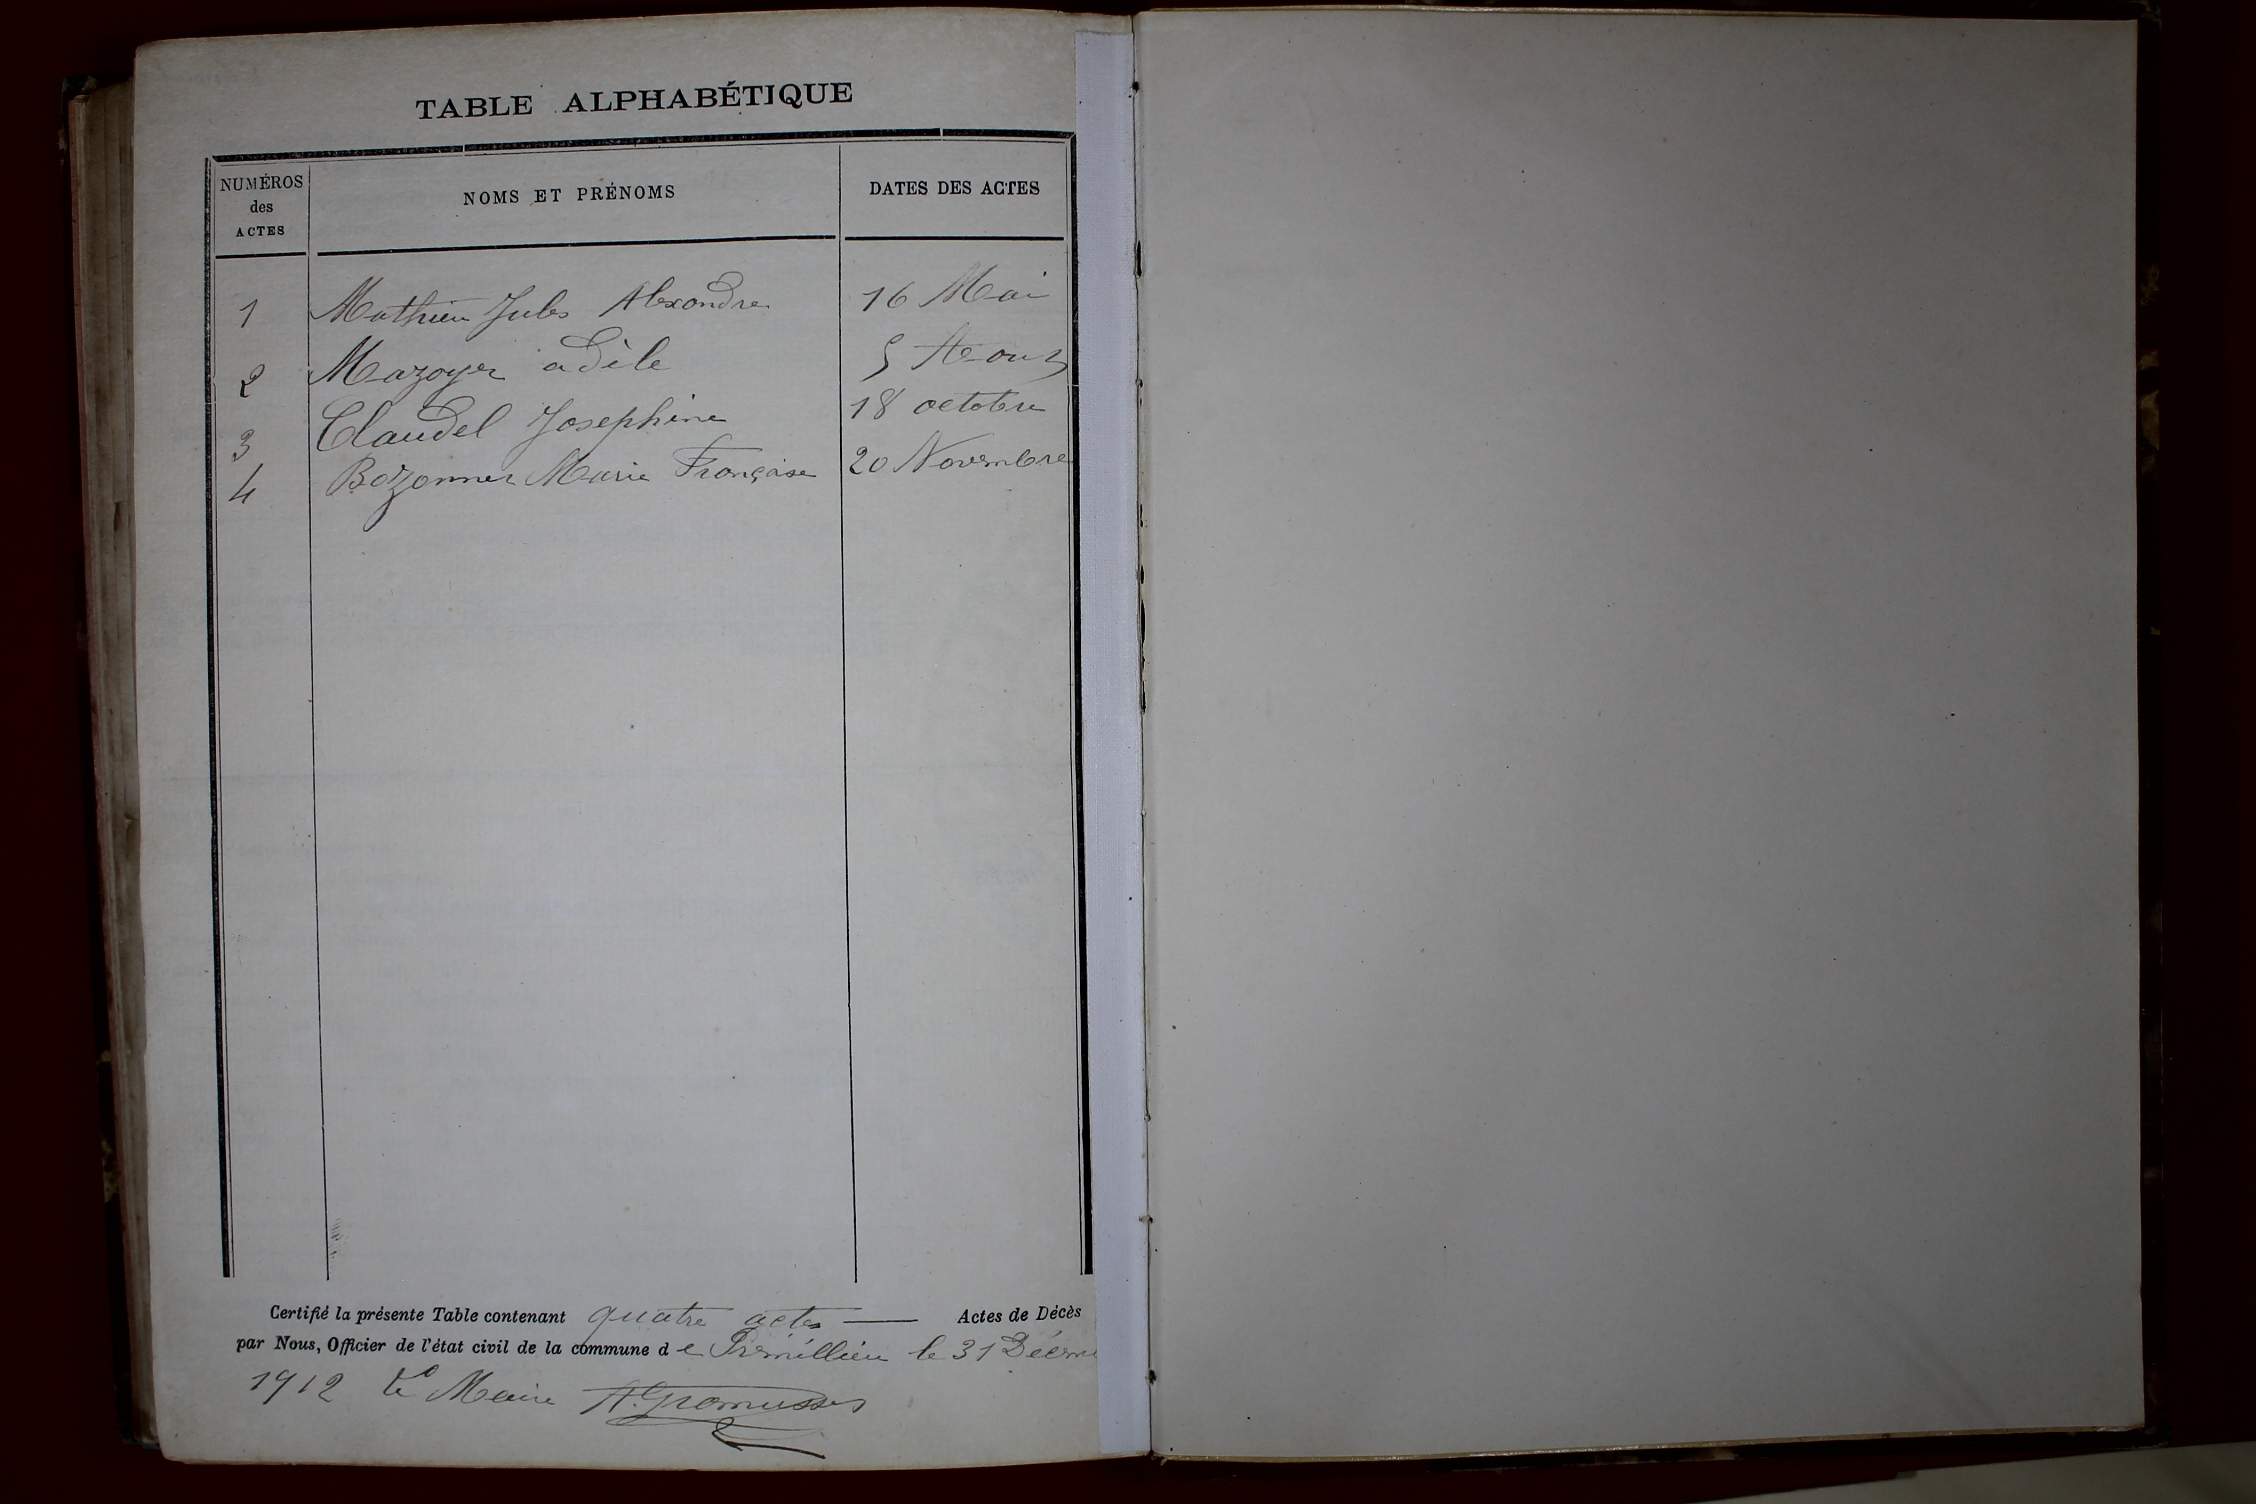 TABLE ALPHABÉTIQUE
NUMÉROS des ACTES NOMS ET PRÉNOMS DATES DES ACTES
1 Mathieu Jules Alexandre 16 Mai
2 Mazoyer adèle 5 Aout
3 Claudel Josephine 18 octobre
4 Bozonnet Marie Françoise 20 Novembre
Certifié la présente Table contenant quatre actes Actes de Décès
par Nous, Officier de l'état civil de la commune de Prémillieu le 31 Décem
1912 Le Maire